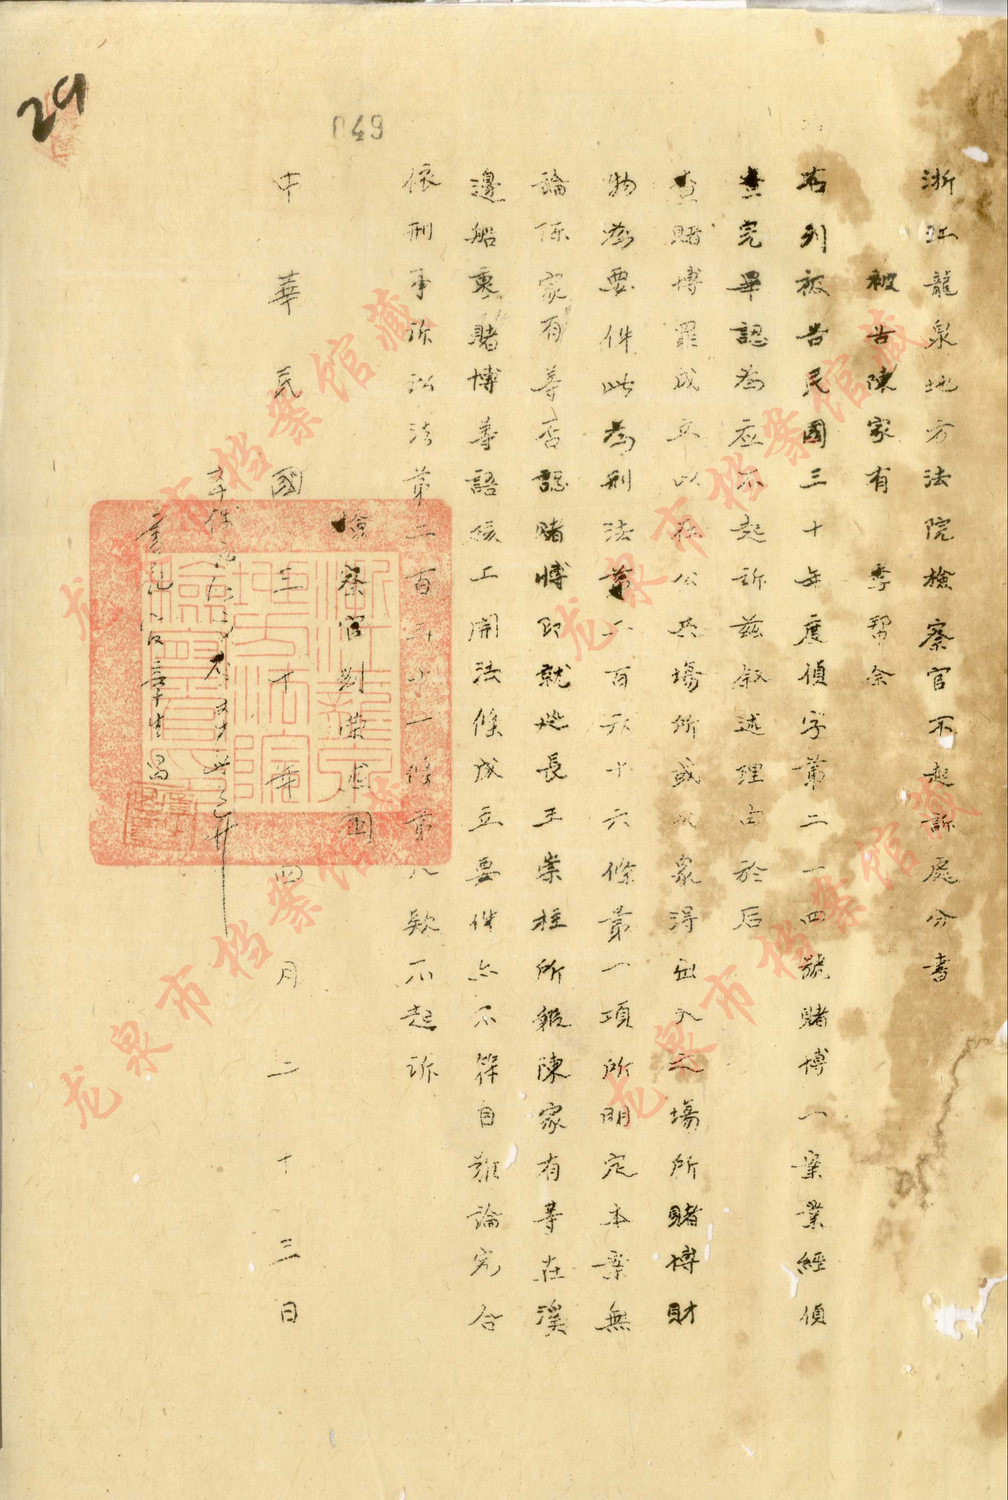 29
049
浙江龍泉地方法院檢察官不起訴處分書
被告陳家有 李幫余
右列被告民國三十年度偵字第二一四號賭博一案業經偵
查完畢認為應不起訴茲叙述理由於后
查賭博罪成立以在公共場所或公眾得出入之場所賭博財
物為要件此為刑法第二百六十六條第一項所明定本案無
論陳家有等否認賭博即就地長王崇柱所報陳家有等在溪
邊船裏賭博等語核工開法條成立要件亦不符自難論究合
依刑事訴訟法第二百三十一條第八款不起訴
檢察官
中華民國三十年四月二十三日
書記官章
龙泉市档案馆藏
龙泉市档案馆藏
龙泉市档案馆藏
龙泉市档案馆藏